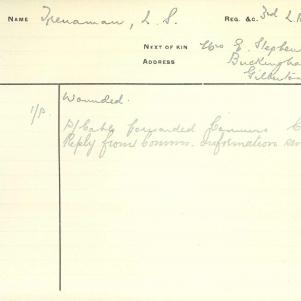 NAME Trenaman, L. S. REG. &C. 3rd L.
NEXT OF KIN Mrs E. Stephen
ADDRESS Buckingha
Gilberto
1/P. Wounded.
P/Cable forwarded
Reply from Comm. Information sen